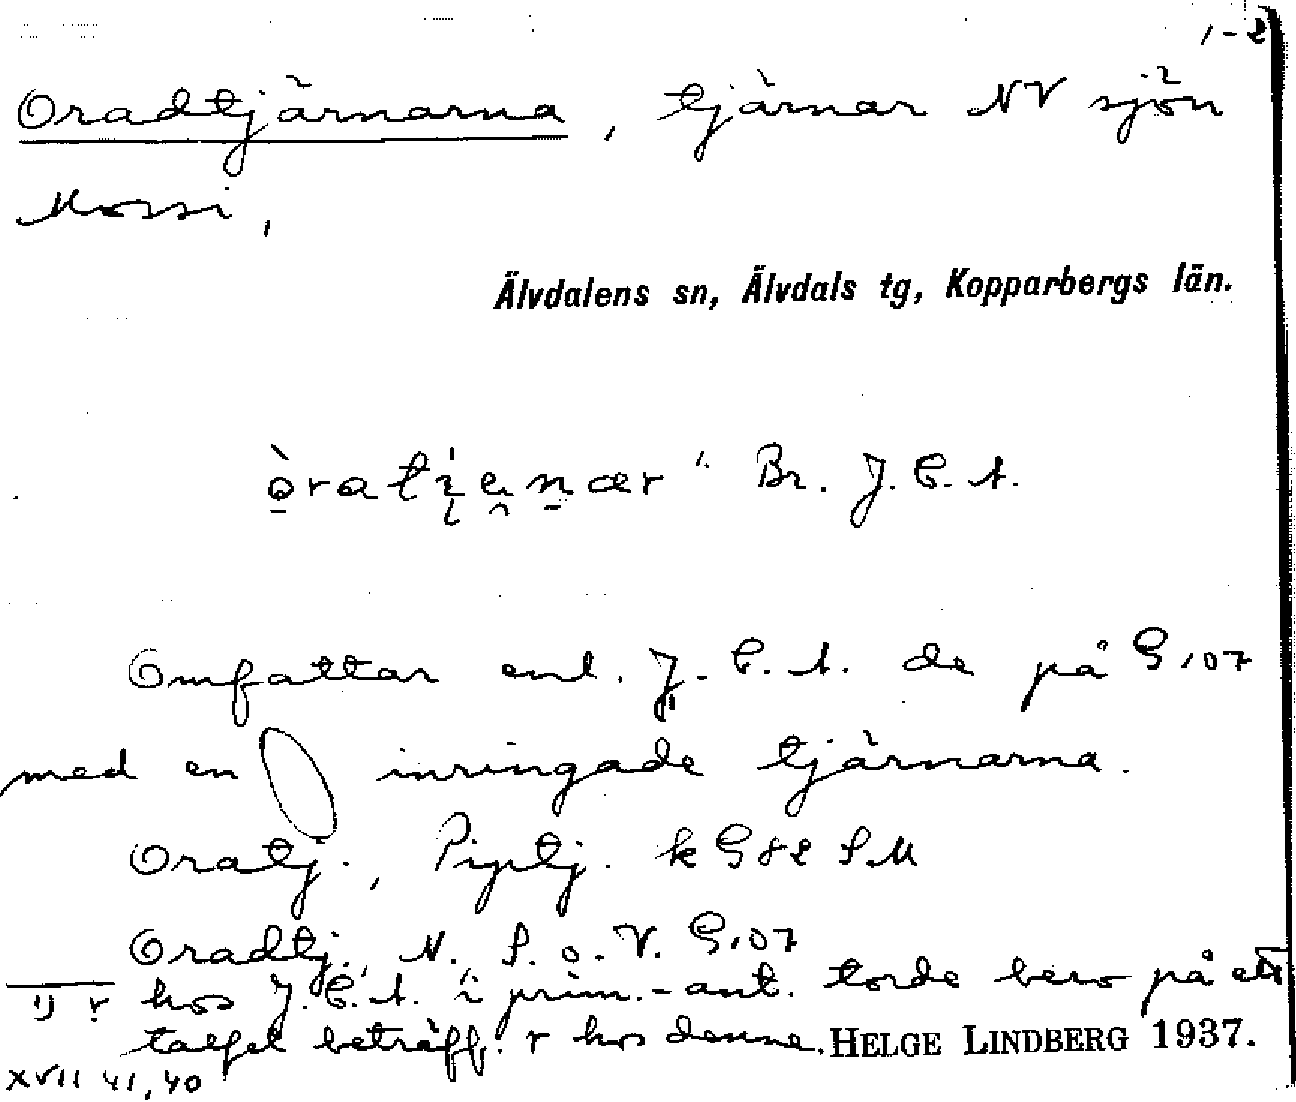 1-2
Oradtjärnarna, tjärnar NV sjön
Mossi,
Älvdalens sn, Älvdals tg, Kopparbergs län.
Br. J. E. A.
Omfattar enl. J. E. A. de på G 107
med en inringade tjärnarna.
Oratj., Pigtj. k G 82 S M
Oradtj., N. S. o. V. G 107
1) r hos J. E. A. i prim.-ant. torde bero på ett
talfel beträff. r hos denne. HELGE LINDBERG 1937.
XVII 41, 40